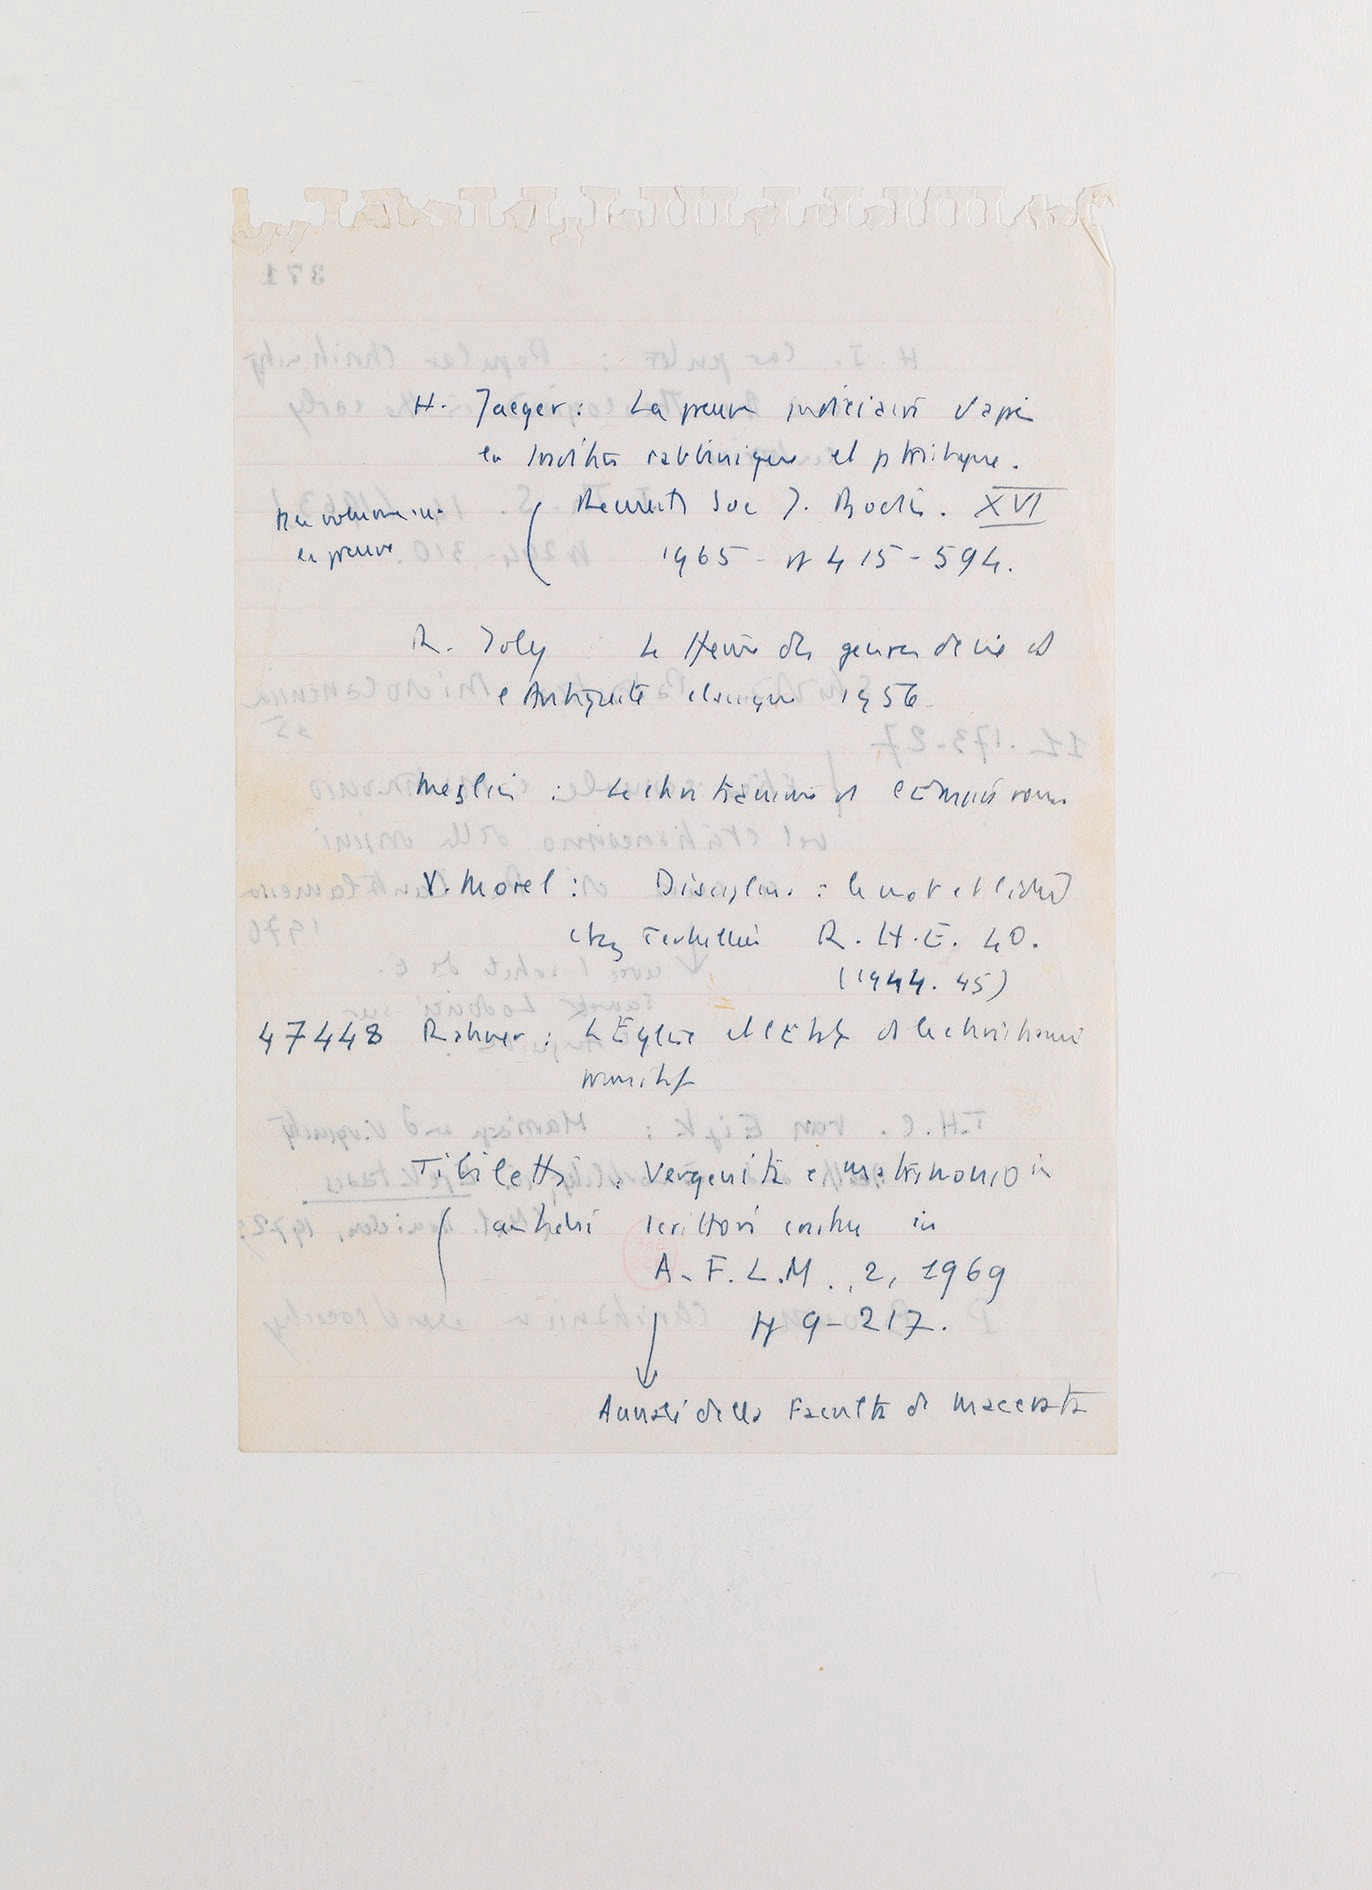 H. Jaeger : La preuve judiciaire d'après
la tradition rabbinique et patristique.
Recueils Soc J. Bodin. XVI
la preuve
1965 - pp 415-594.
R. Joly : Le thème des genres de vie et
l'Antiquité classique 1956
Meslin : Le christianisme et l'Empire romain
V. Morel : Disciplina : le mot et l'idée
chez Tertullien R.H.E. 40.
(1944. 45)
47448 Rahner : L'Eglise et l'Etat ds le christianisme
primitif
Tibiletti : Verginità e matrimonio in
antichi scrittori cristiani in
A.F.L.M., 2, 1969
pp 9-217.
Annali della Facolta di Macerata